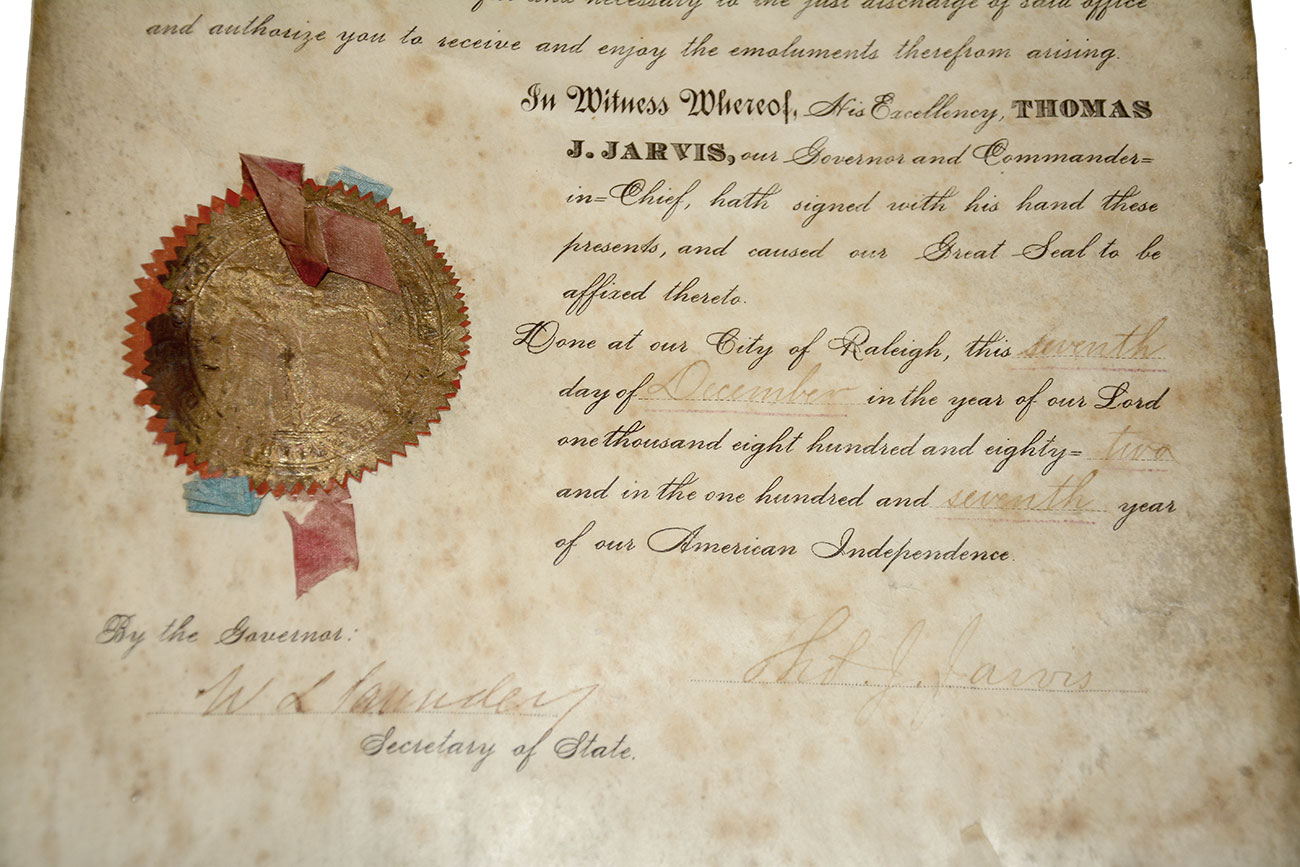 and necessary to the just discharge of said office
and authorize you to receive and enjoy the emoluments therefrom arising.
In Witness Whereof, His Excellency, THOMAS
J. JARVIS, our Governor and Commander=
in=Chief, hath signed with his hand these
presents, and caused our Great Seal to be
affixed thereto.
Done at our City of Raleigh, this seventh
day of December in the year of our Lord
one thousand eight hundred and eighty= two
and in the one hundred and seventh year
of our American Independence.
By the Governor:
Tho J. Jarvis
W L Saunders
Secretary of State.